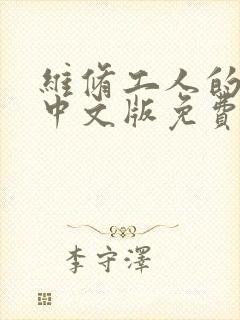 維脩工人的
中文版免費
李守澤